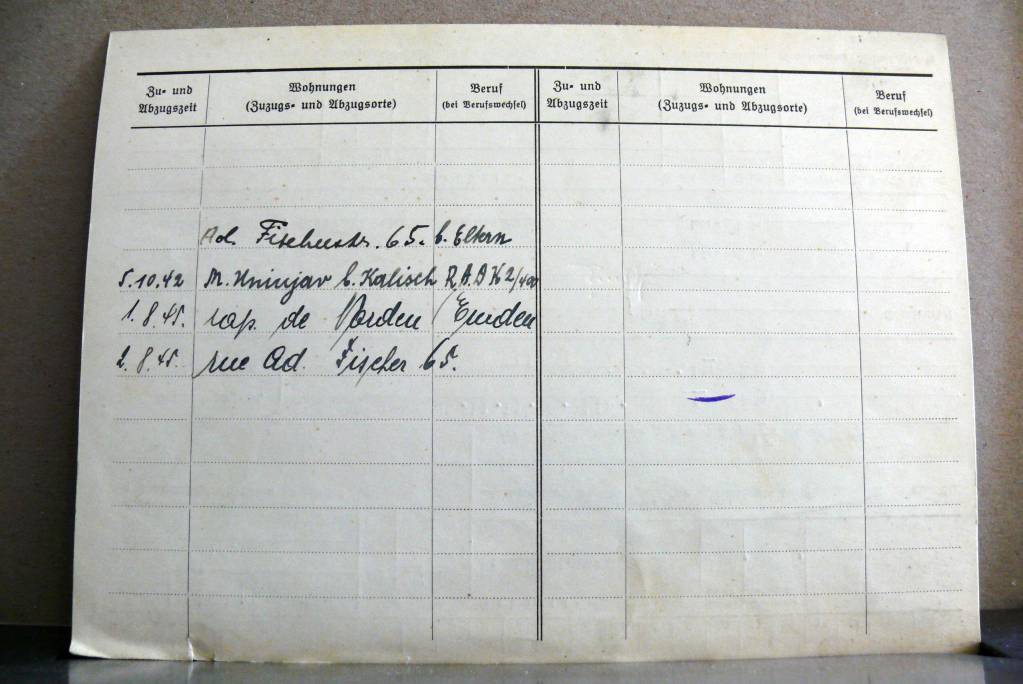 Zu- und Abzugszeit
Wohnungen
(Zuzugs- und Abzugsorte)
Beruf
(bei Berufswechsel)
Zu- und Abzugszeit
Wohnungen
(Zuzugs- und Abzugsorte)
Beruf
(bei Berufswechsel)
Ad. Fischerstr. 65. b. Eltern
5.10.42 b. Kalisch R.A.D K2/400
1.8.45. rap. de Norden / Emden
2.8.45. rue Ad. Fischer 65.